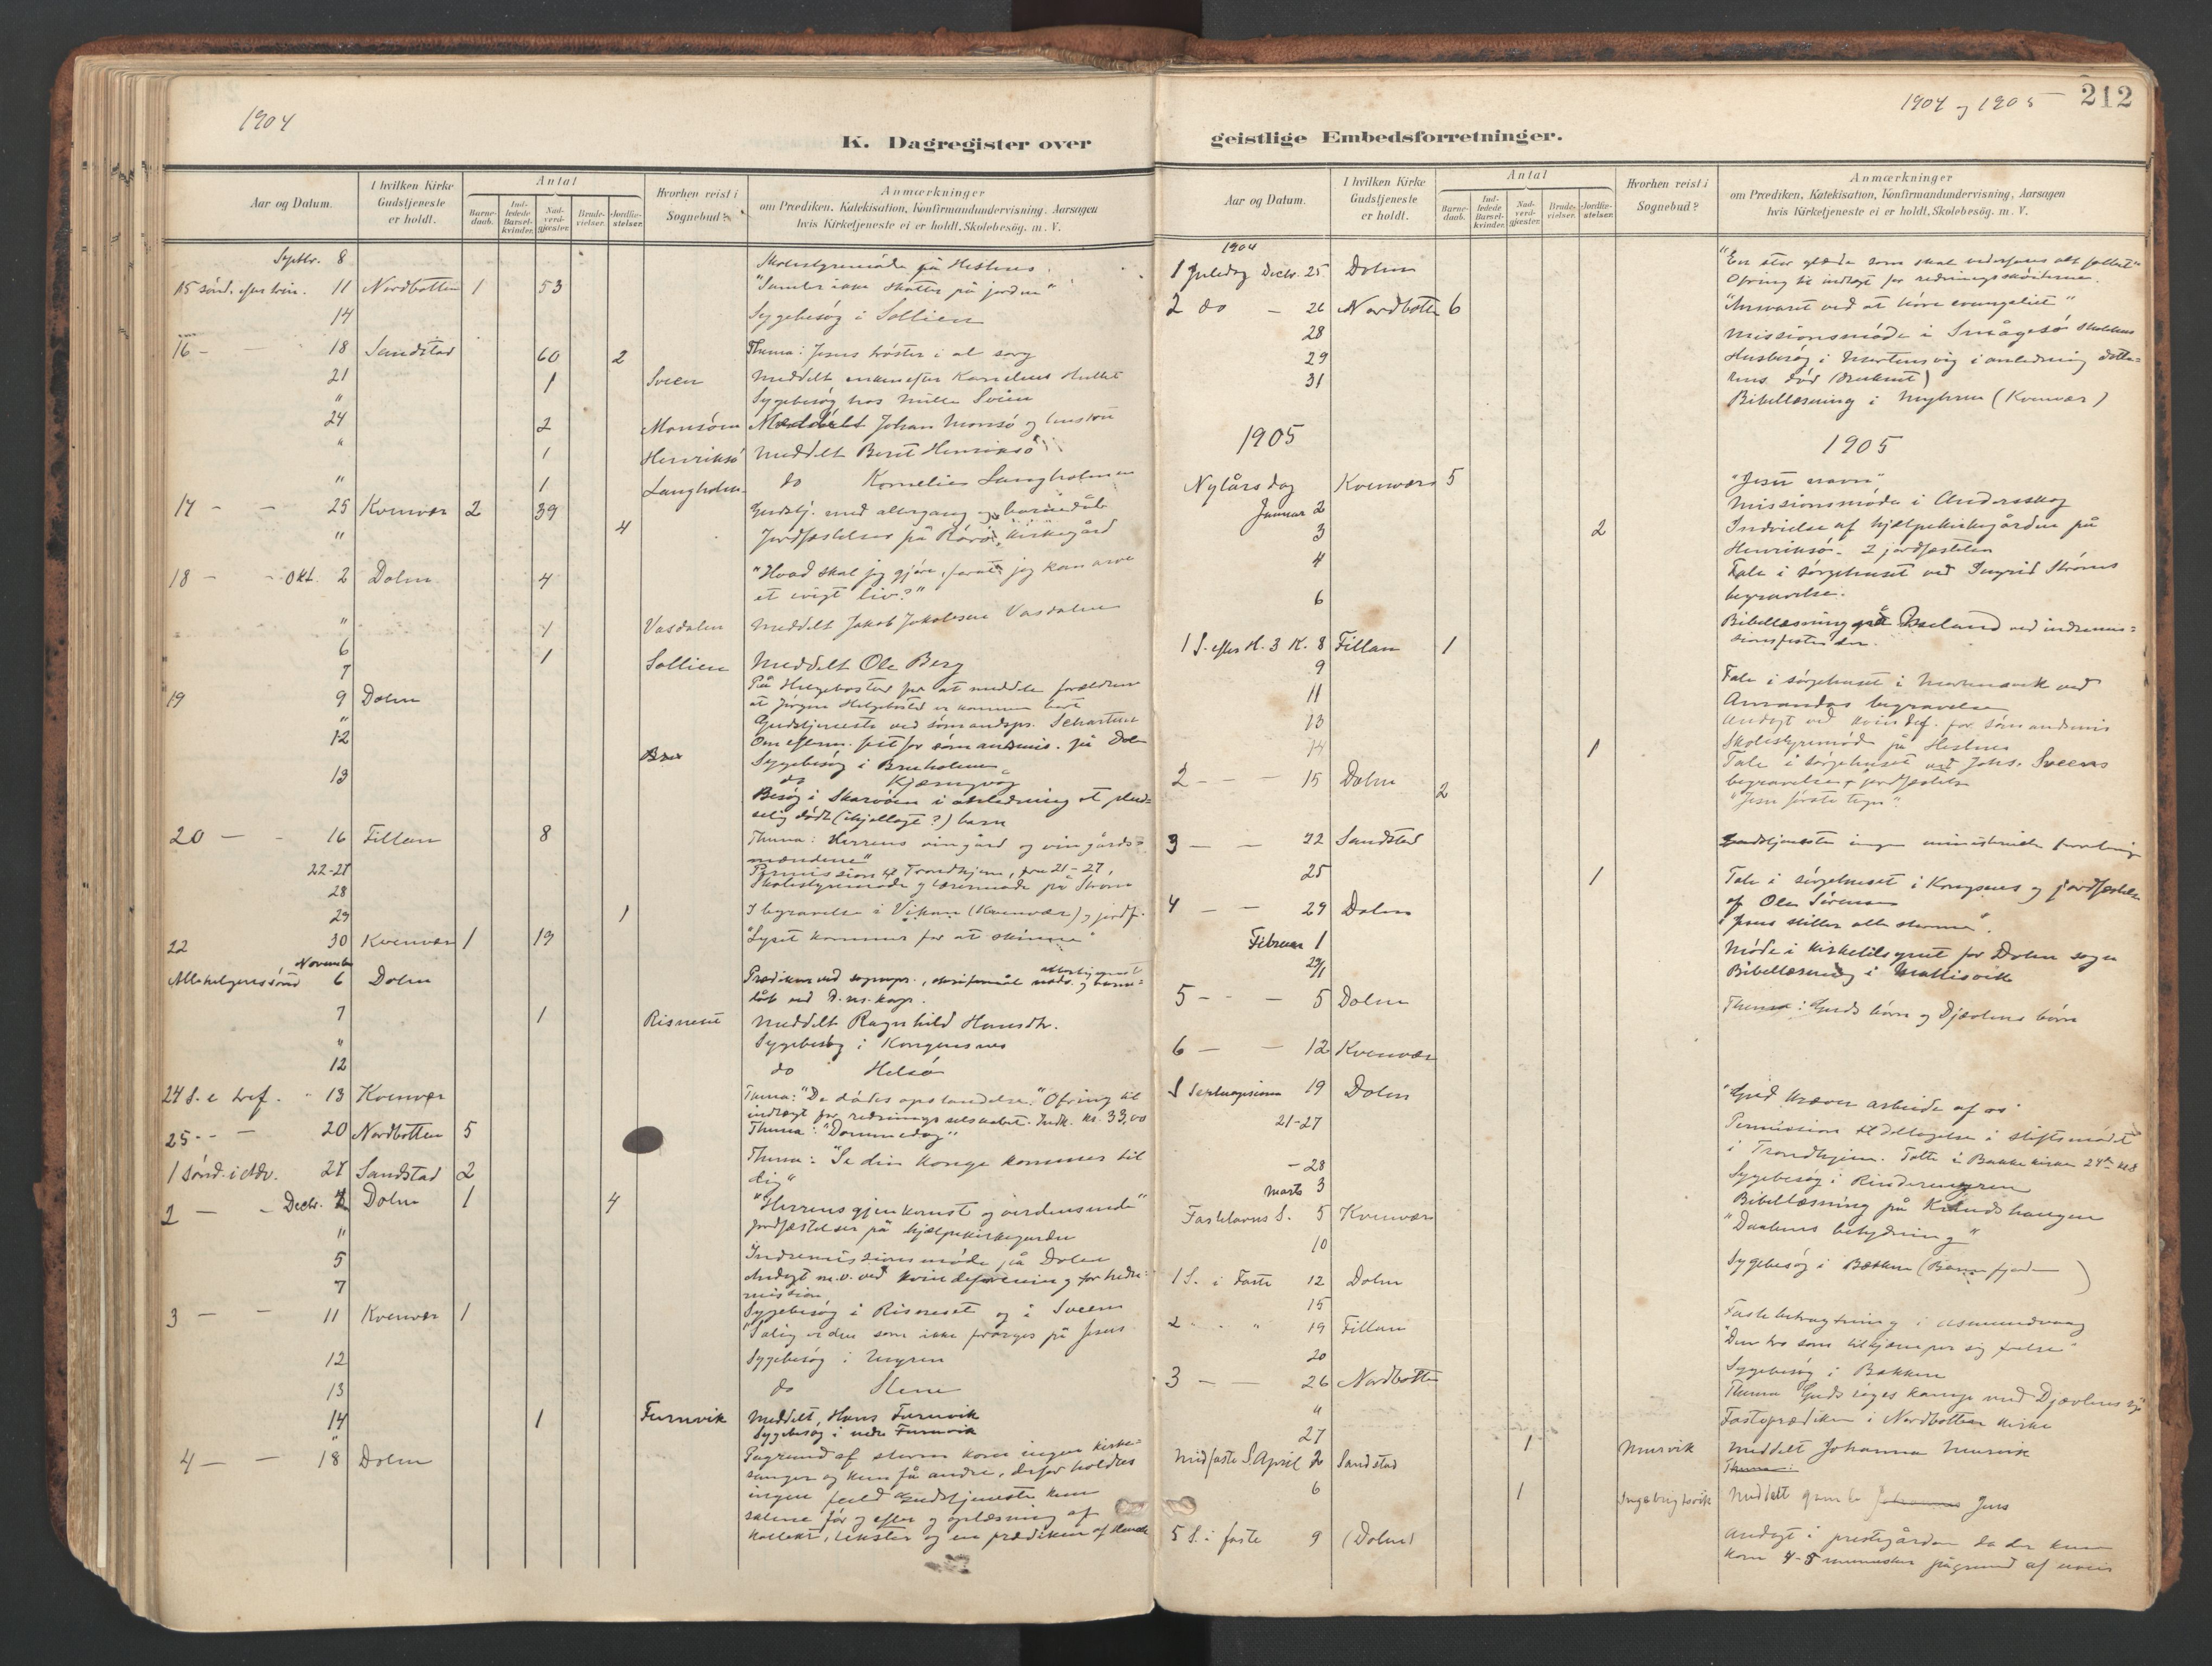 1904
K. Dagregister over
Aar og Datum.
I hvilken Kirke Gudstjeneste er holdt.
Antal
Barnedaab.
Indledede Barselkvinder.
Nadverdgjæster.
Brudevielser.
Jordfæstelser.
Hvorhen reist i Sognebud?
Anmærkninger
om Prædiken, Katekisation, Konfirmandundervisning, Aarsagen
hvis Kirketjeneste ei er holdt, Skolebesøg. m. V.
Septbr. 8 Skolestyremøde på Hestnes
15 sønd. efter trin. 11 Nordbotten 1 53 "Samler ikke skatter på jorden"
14 Sygebesøg i Sollien
16 - 18 Sandstad 60 2 Thema: Jesus trøster i al sorg
21 1 Sveen Meddelt enkenefter Kornelius
" Sygebesøg hos Sveen
24 2 Monsøen Meddelt Johan Monsø og hustru
" 1 Henriksø Meddelt Berit Henriksø
" 1 Langholmen do Kornelius Langholmen
17 - - 25 Kvenvær 2 39 Gudstj. med altergang og barnedåb
" 4 Jordfæstelser på kirkegård
18 - - Okt. 2 Dolm 4 "Hvad skal jeg gjøre, forat jeg kan arve
et evigt liv?"
" 1 Vasdalen Meddelt Jakob Jakobsen Vasdalen
6 1 Sollien Meddelt Ole Berg
7 På Helgebostad for at meddele forældrene
at Jørgen Helgebostad er kommen bort
19 9 Dolm Gudstjeneste ved sømandspr.
" Om efterm. fest for sømandsmis. på Dolm
12 Sygebesøg i Bruholmen
13 do Kjærringvåg
Besøg i Skarvøen i anledning et pludselig
dødt (ihjellagt?) barn
20 - - 16 Fillan 8 Thema: Herrens vingård og vingårdsmændene"
22-27 Permission til Trondhjem, fra 21-27,
28 Skolestyremøde og lærermøde på Strøm
29 1 I begravelse i Vikan (Kvenvær) og jordf.
22 30 Kvenvær 1 19 "Lyset kommer for at skinne"
November
Allehelgenssønd 6 Dolm Prædiken ved sognepr.,
7 1 Risneset Meddelt Ragnhild Hansdtr.
" Sygebesøg i Kongensnes
12 do Helsø
24 S. e tref. " 13 Kvenvær Thema: "De dødes opstandelse." Ofring til
indtægt for redningsselskabet. Indk. kr. 33,00
25 - - 20 Nordbotten 5 Thema: "Dommedag"
1 sønd. i Adv. 27 Sandstad 2 Thema: "Se din konge kommer til
dig"
2 - - Decbr. 4 Dolm 1 4 "Herrens gjenkomst og verdens ende"
" Jordfæstelser på hjælpekirkegården
5 Indremissionsmøde på Dolm
7 Andagt m.v. ved kvindeforening for hedningemission
Sygebesøg i Risneset og i Sveen
3 - - 11 Kvenvær 1 "Salig er den som ikke forarges på Jesus
12 Sygebesøg i Myren
13 do Stene
14 1 Furuvik Meddelt, Hans Furuvik
" Sygebesøg i nedre Furuvik
4 - - 18 Dolm Pagrund af storm kom ingen kirkesanger
og kun få andre, derfor holdtes
ingen fuld gudstjeneste kun
salme før og efter og oplæsning af
kollekt, tekster og en prædiken af
1904 og 1905
212
geistlige Embedsforretninger.
Aar og Datum.
I hvilken Kirke Gudstjeneste er holdt.
Antal
Barnedaab.
Indledede Barselkvinder.
Nadverdgjæster.
Brudevielser.
Jordfæstelser.
Hvorhen reist i Sognebud?
Anmærkninger
om Prædiken, Katekisation, Konfirmandundervisning, Aarsagen
hvis Kirketjeneste ei er holdt, Skolebesøg. m. V.
1904
1 Juledag Decbr. 25 Dolm "En stor glæde som skal vederfares alt folket"
Ofring til indtægt for redningsskøiterne.
2 do - 26 Nordbotten 6 "Ansvaret ved at høre evangeliet"
28 Missionsmøde i Smågesø skolehus
29 Husbesøg i Mortensvig i anledning
død (druknet)
31 Bibellæsning i Myhren (Kvenvær)
1905 1905
Nytårsdag Kvenvær 5 "Jesu navn"
Januar 2 Missionsmøde i Andersskog
3 2 Indvielse af hjælpekirkegården på
Henriksø - 2 jordfæstelser
4 Tale i sørgehuset ved Ingrid Strøms
begravelse.
6 Bibellæsning på Ulseland ved indremissionsfesten der.
1 S. efter H. 3 K. 8 Fillan 1
9 Tale i sørgehuset i ved
Amandas begravelse
11 Andagt ved kvindef. for sømandsmis
13 Skolestyremøde på Hestnes
14 1 Tale i sørgehuset ved Johs. Sveens
begravelse + jordfæstelse
2 - - - 15 Dolm 2 "Jesu første tegn".
3 - - 22 Sandstad Gudstjeneste ingen ministerielle forretninger
25 1 Tale i sørgehuset i Kongsnes og jordfæstelse
af Ole Sørensen
4 - - 29 Dolm "Jesus stiller alle storme".
Februar 1 Møde i kirketilsynet for Dolm sogn
29/1 Bibellæsning i Mattisvik
5 - - - 5 Dolm Thema: Guds børn og Djævlens børn
6 - - 12 Kvenvær
S Septuagesima 19 Dolm "Gud kræver arbeide af os"
21-27 Permission til deltagelse i stiftsmødet
i Trondhjem. Talte i Bakke kirke 24de kl 8
- 28 Sygebesøg i
Marts 3 Bibellæsning på Knudshaugen
Fastelavns S. 5 Kvenvær "Daabens betydning"
10 Sygebesøg i Bækken
1 S. i Faste 12 Dolm
15 Fastebetragtning i Asmundvaag
2 " " 19 Fillan "Den tro som tilkjæmper sig frelse"
20 Sygebesøg i Bakken
3 - - 26 Nordbotten Thema Guds riges kamp med Djævlens rige
" Fasteprædiken i Nordbotten kirke
27 1 Mursvik Meddelt Johanna Mursvik
Midfaste S. April 2 Sandstad Thema:
6 1 Ingebrigtsvik Meddelt gamle Johannes Jens
5 S. i faste 9 (Dolm) Andagt i prestegården da der kun
kom 4-5 mennesker pågrund af uveir